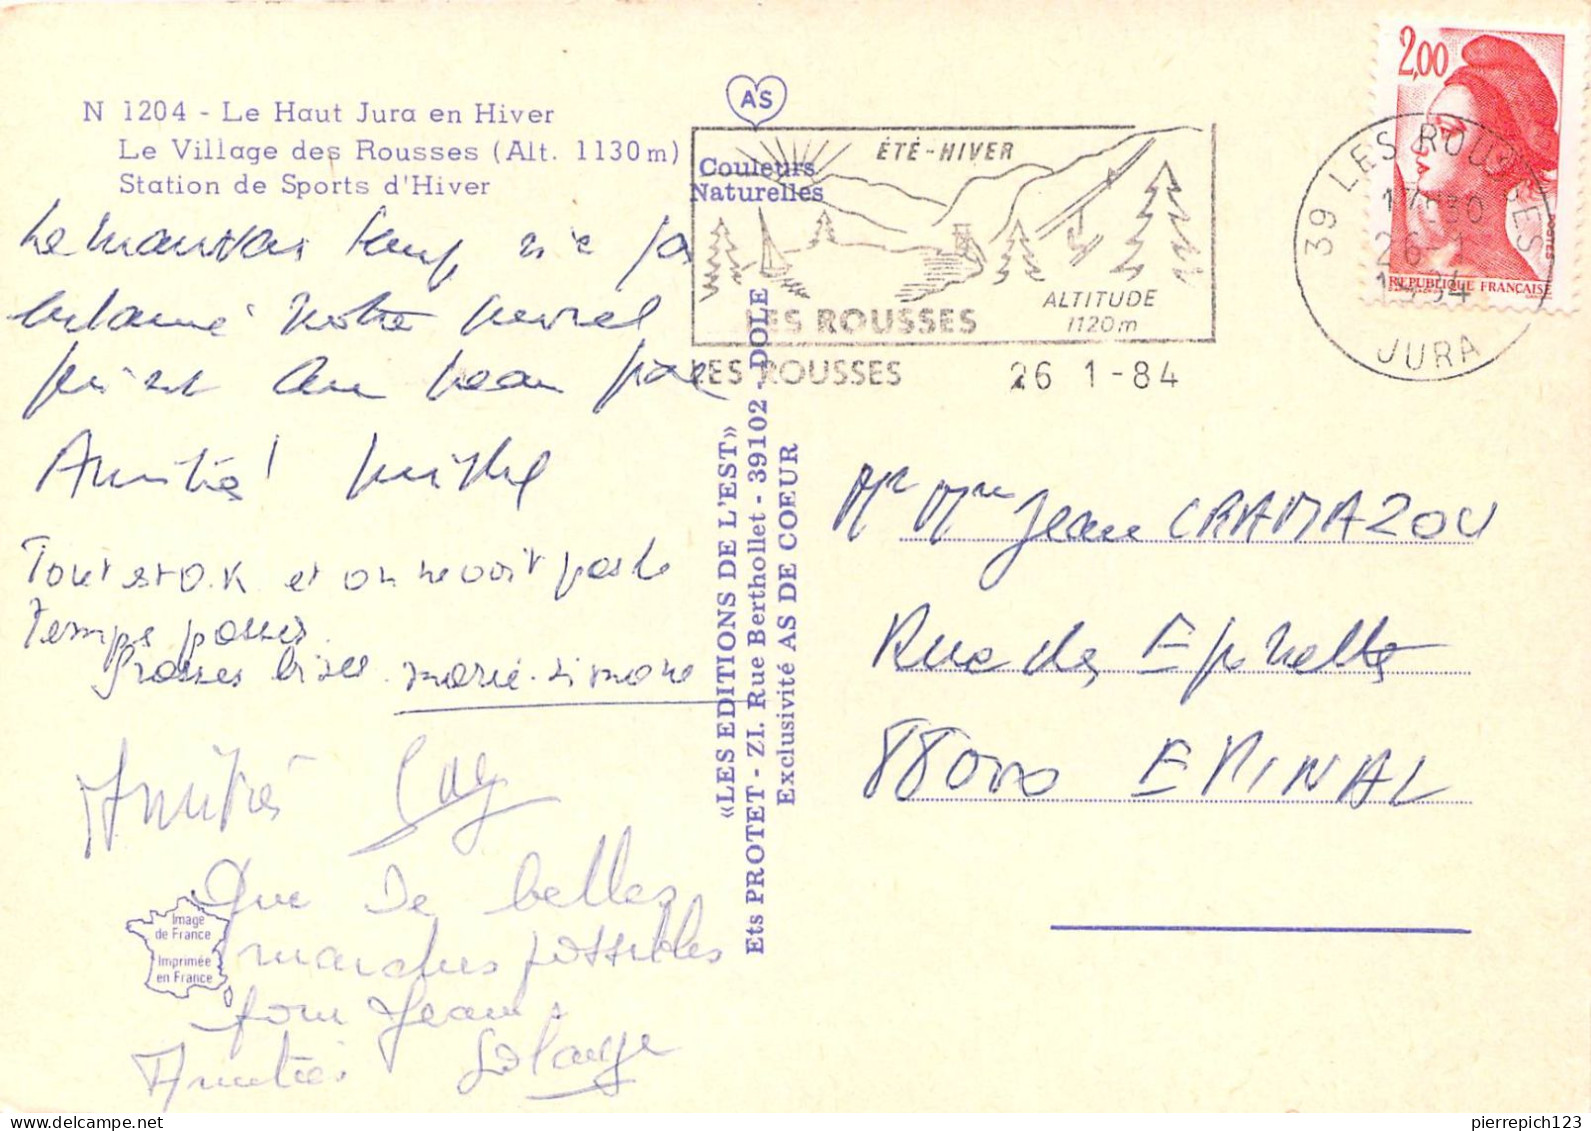 N 1204 - Le Haut Jura en Hiver
Le Village des Rousses (Alt. 1130 m)
Station de Sports d'Hiver
AS
Couleurs
Naturelles
ÉTÉ-HIVER
LES ROUSSES
ALTITUDE
1120m
LES ROUSSES 26 1-84
2,00
POSTES
REPUBLIQUE FRANÇAISE
39 LES ROUSSES
17H30
26-1
1984
JURA
Le mauvais temps n'a pas
entamé notre moral
Amitiés Michel
Tout est O.K et on ne voit pas le
temps passer.
Grosses bises marie-simone
Amitiés Guy
Que de belles
marches possibles
pour Jean.
Amitiés Solange
Image
de France
Imprimée
en France
«LES EDITIONS DE L'EST»
Ets PROTET - ZI. Rue Berthollet - 39102 DOLE
Exclusivité AS DE COEUR
Mr Mme Jean CRAMAZOU
Rue des
88000 EPINAL
pierrepich123